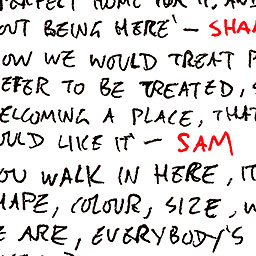 PERFECT HOME FOR IT. AND
OUT BEING HERE' - SHA
OW WE WOULD TREAT P
EFER TO BE TREATED, S
ELCOMING A PLACE, THAT
OULD LIKE IT - SAM
OU WALK IN HERE, IT
HAPE, COLOUR, SIZE, W
E ARE, EVERYBODY'S